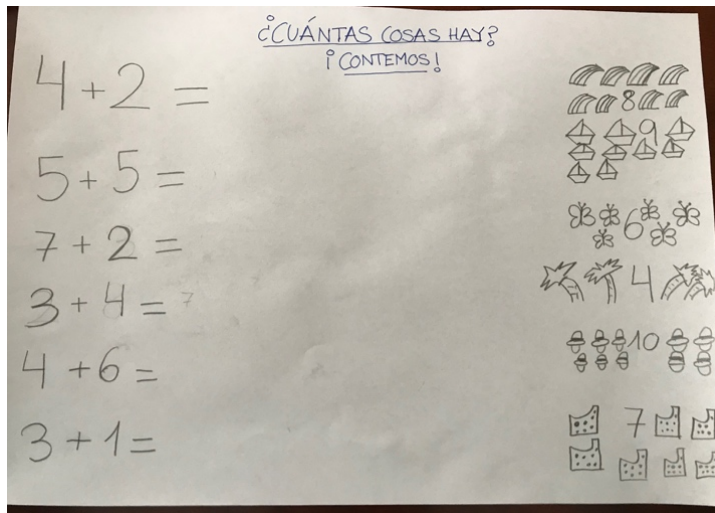 ¿CUÁNTAS COSAS HAY?
¡CONTEMOS!
4+2=
5+5=
7+2=
3+4=7
4+6=
3+1=
8
9
6
4
10
7